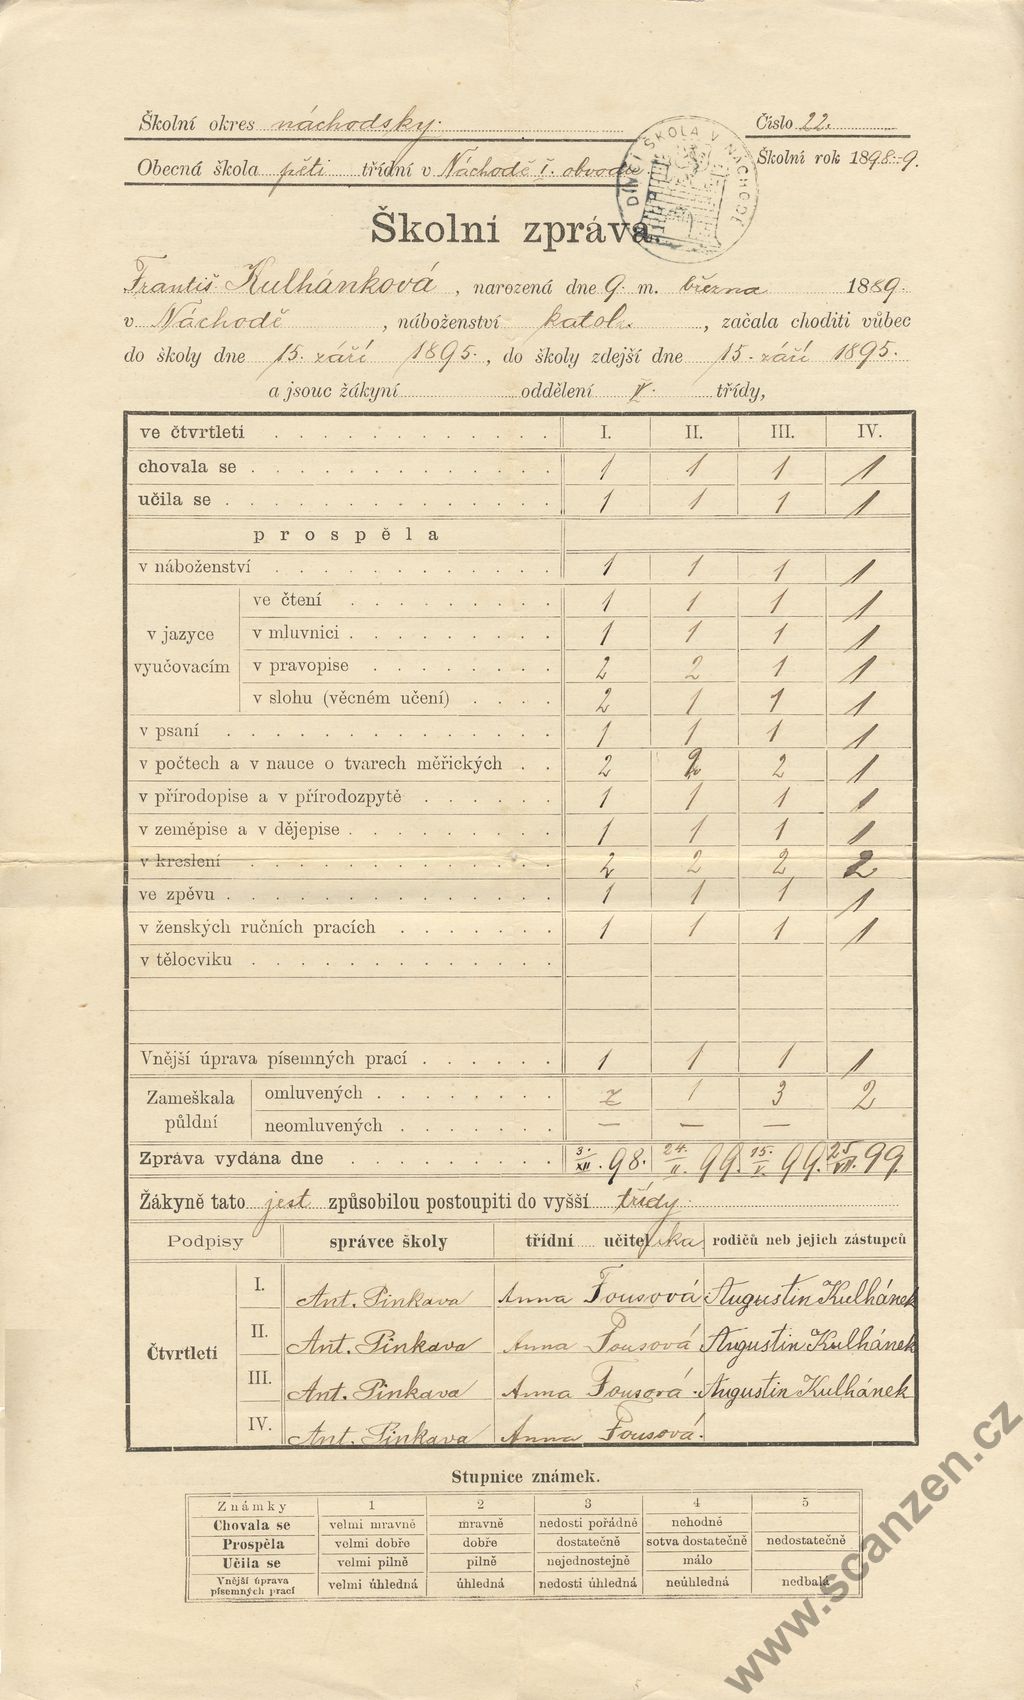 Školní okres náchodský.
Číslo 22.
Obecná škola pěti třídní v Náchodě I. obvodu
Školní rok 1898-9.
DÍVČÍ ŠKOLA V NÁCHODĚ
Školní zpráva.
Františ Kulhánková, narozená dne 9. m. března 1889.
v Náchodě, náboženství katol., začala choditi vůbec
do školy dne 15. září 1895., do školy zdejší dne 15. září 1895.
a jsouc žákyní oddělení V. třídy,
ve čtvrtletí I. II. III. IV.
chovala se 1 1 1 1
učila se 1 1 1 1
prospěla
v náboženství 1 1 1 1
v jazyce vyučovacím
ve čtení 1 1 1 1
v mluvnici 1 1 1 1
v pravopise 2 2 1 1
v slohu (věcném učení) 2 1 1 1
v psaní 1 1 1 1
v počtech a v nauce o tvarech měřických 2 2 2 1
v přírodopise a v přírodozpytě 1 1 1 1
v zeměpise a v dějepise 1 1 1 1
v kreslení 2 2 2 2
ve zpěvu 1 1 1 1
v ženských ručních pracích 1 1 1 1
v tělocviku
Vnější úprava písemných prací 1 1 1 1
Zameškala půldní
omluvených 1 3 2
neomluvených — — —
Zpráva vydána dne 3./XII. 98. 24./II. 99. 15./V. 99. 25/VII. 99.
Žákyně tato jest způsobilou postoupiti do vyšší třídy.
Podpisy správce školy třídní učitelka rodičů neb jejich zástupců
Čtvrtletí
I. Ant. Pinkava Anna Fousová Augustin Kulhánek
II. Ant. Pinkava Anna Fousová Augustin Kulhánek
III. Ant. Pinkava Anna Fousová Augustin Kulhánek
IV. Ant. Pinkava Anna Fousová.
Stupnice známek.
Známky 1 2 3 4 5
Chovala se velmi mravně mravně nedosti pořádně nehodně
Prospěla velmi dobře dobře dostatečně sotva dostatečně nedostatečně
Učila se velmi pilně pilně nejednostejně málo
Vnější úprava písemných prací velmi úhledná úhledná nedosti úhledná neúhledná nedbalá
www.scanzen.cz